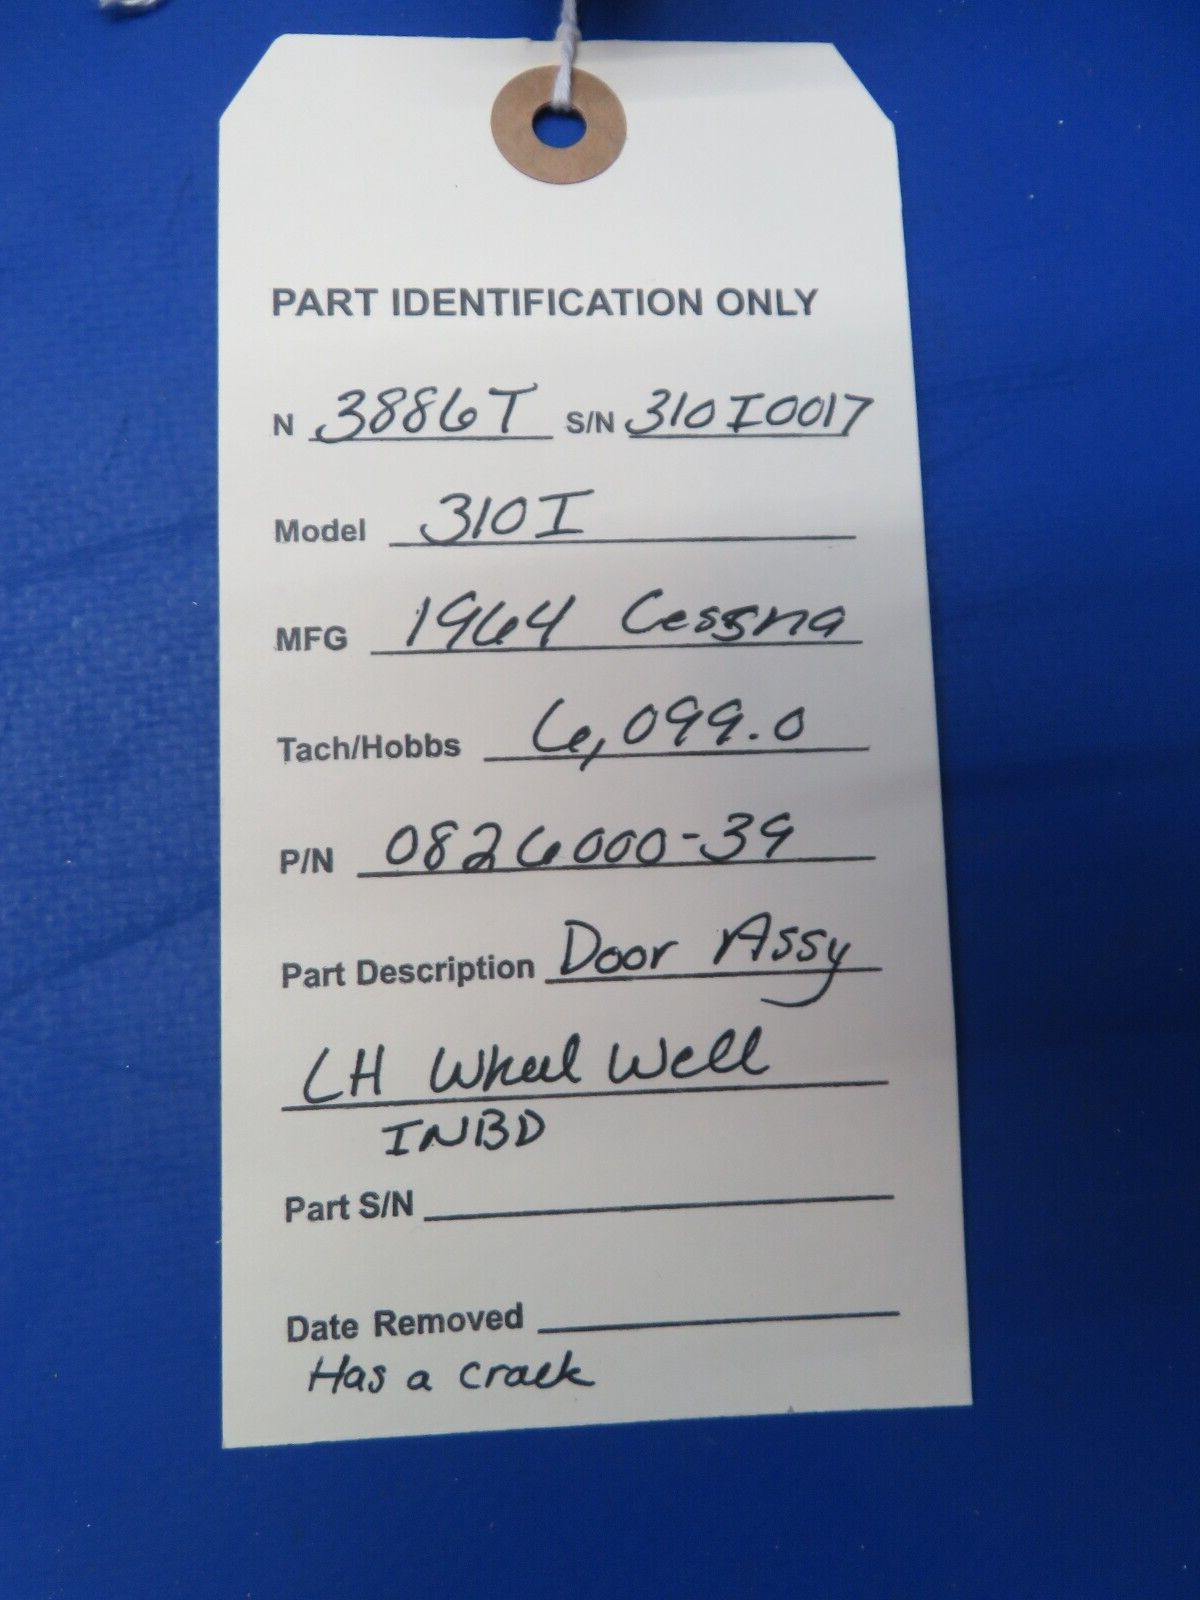 PART IDENTIFICATION ONLY
N 3886T S/N 310I0017
Model 310I
MFG 1964 Cessna
Tach/Hobbs 6,099.0
P/N 0826000-39
Part Description Door Assy
LH Wheel Well
INBD
Part S/N
Date Removed
Has a crack